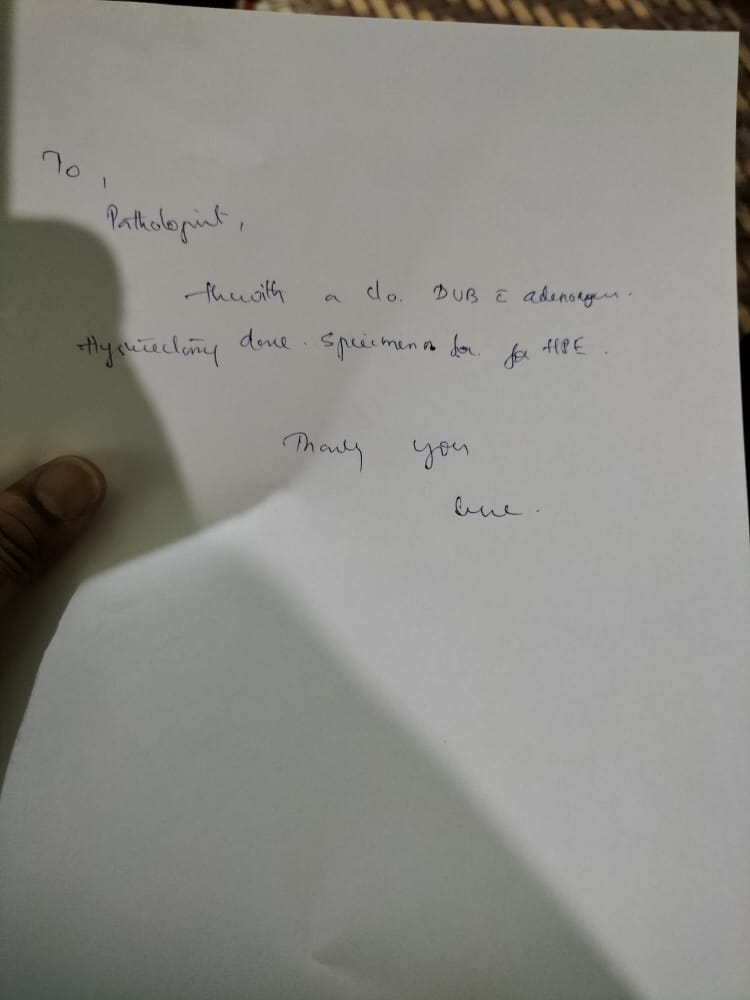 To,
Pathologist,
Herewith a c/o. DUB c̄ adenomyo.
Hysterectomy done. Specimen for HPE.
Thank you